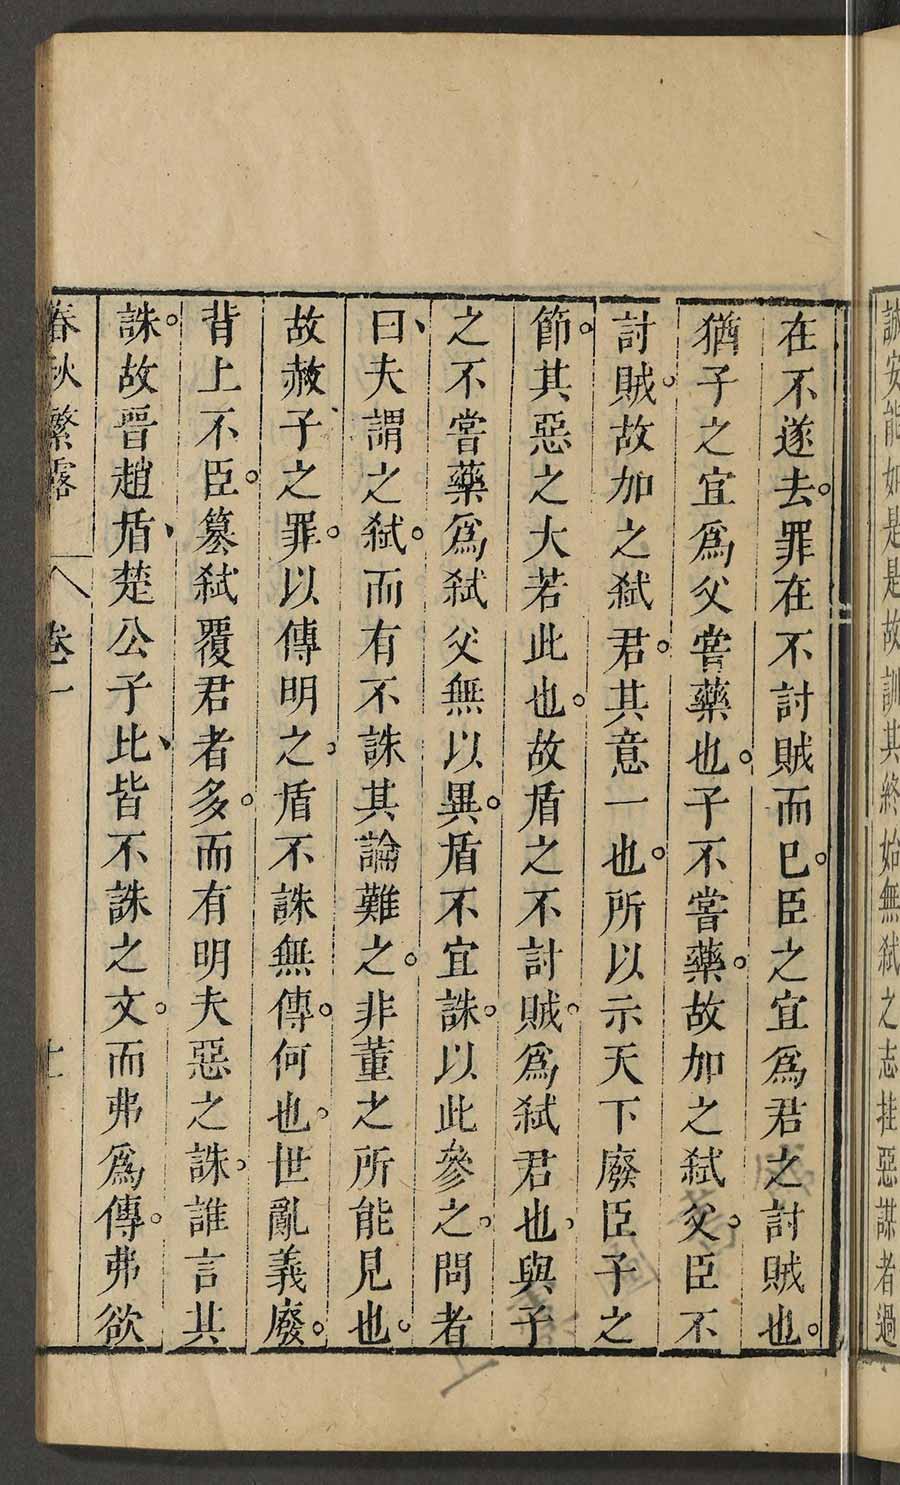 誠安能如是是故訓其終始無弑之志挂惡謀者過
在不遂去罪在不討賊而已臣之宜爲君之討賊也
猶子之宜爲父嘗藥也子不嘗藥故加之弑父臣不
討賊故加之弑君其意一也所以示天下廢臣子之
節其惡之大若此也故盾之不討賊爲弑君也與子
之不嘗藥爲弑父無以異盾不宜誅以此參之問者
曰夫謂之弑而有不誅其論難之非董之所能見也
故赦子之罪以傳明之盾不誅無傳何也世亂義廢
背上不臣簒弑覆君者多而有明夫惡之誅誰言其
誅故晉趙盾楚公子比皆不誅之文而弗爲傳弗欲
春秋繁露 卷一